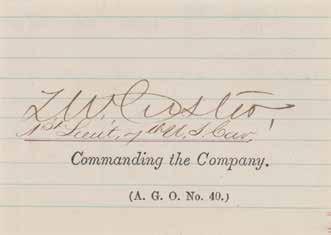 T. W. Custer,
1st Lieut, 7th U. S. Cav,
Commanding the Company.
(A. G. O. No. 40.)